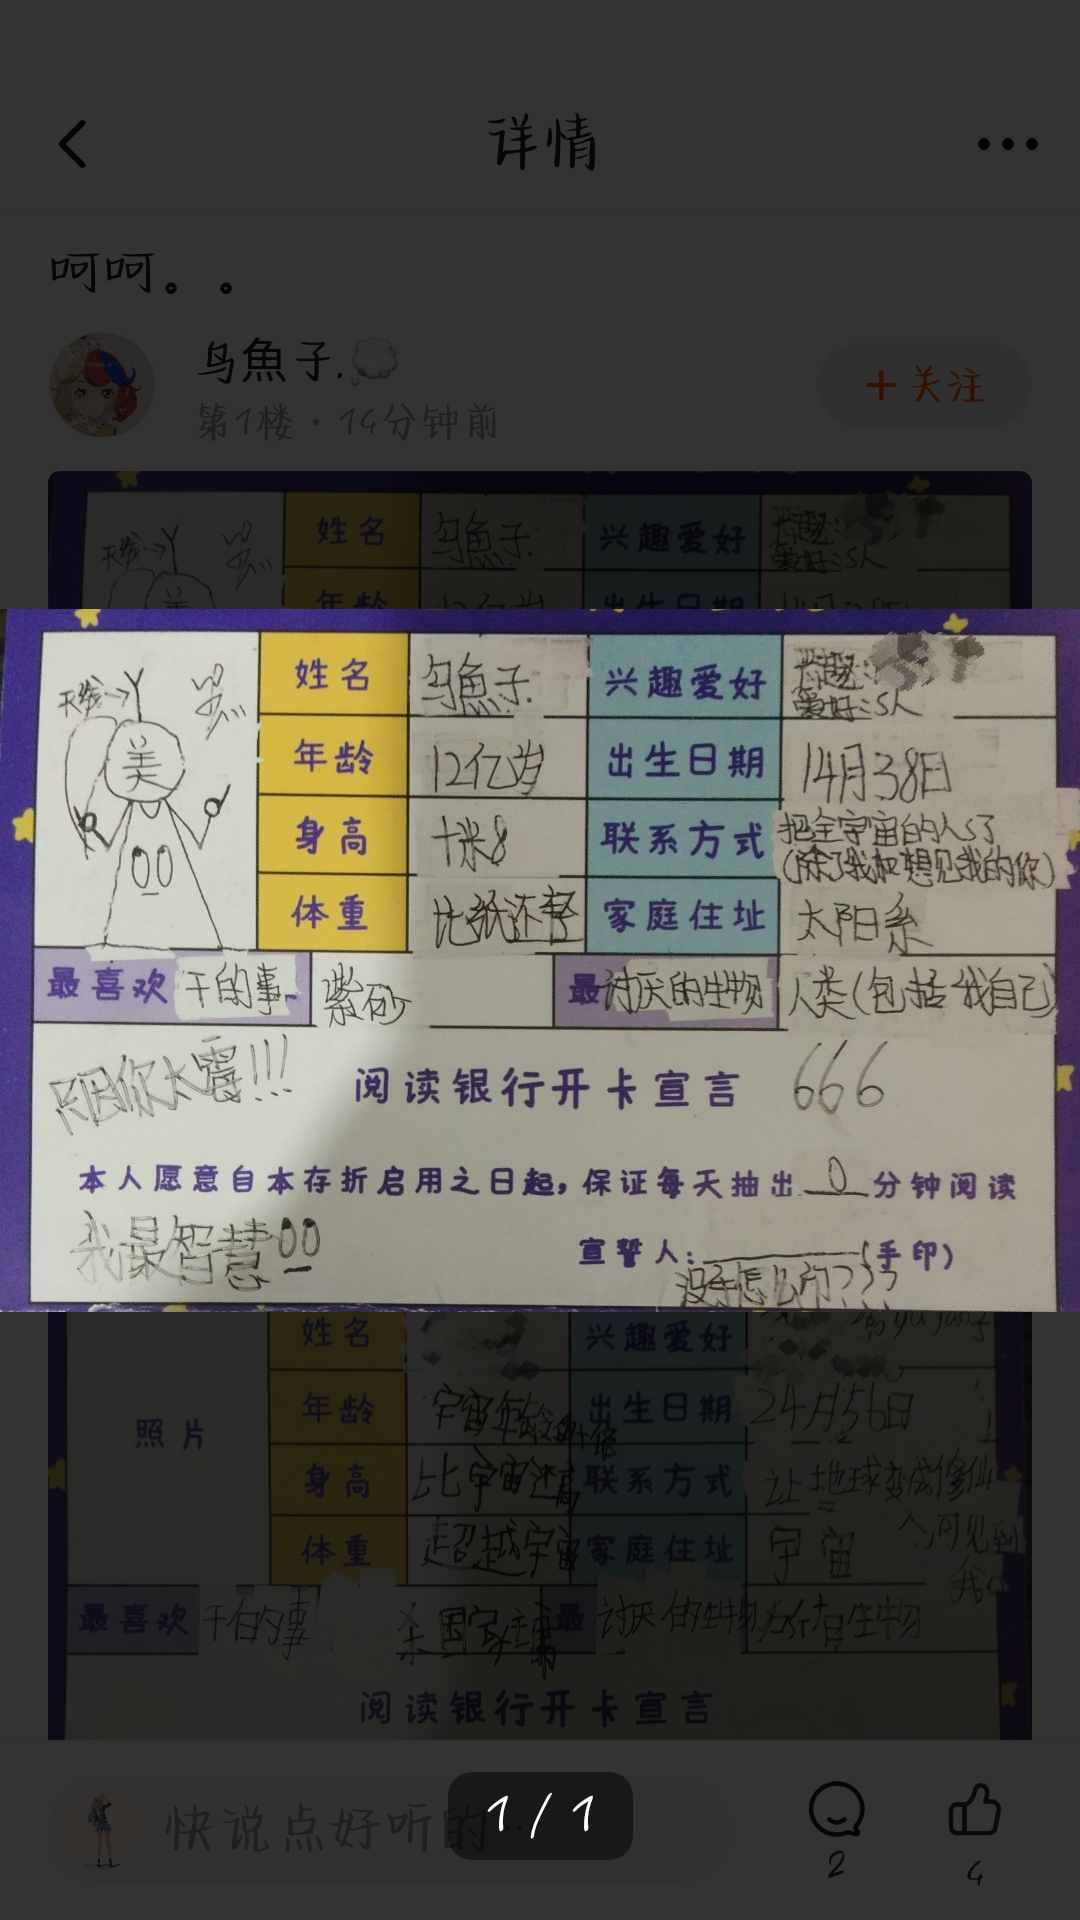 详情
呵呵。。
鸟魚子.
第1楼·14分钟前
+关注
姓名 鸟魚子. 兴趣爱好
爱好:S人
天线→
美
姓名 鸟魚子. 兴趣爱好 兴趣:
爱好:S人
年龄 12亿岁 出生日期 14月38日
身高 十米8 联系方式 把全宇宙的人S了
(除了我和想见我的你)
体重 比纸还轻 家庭住址 太阳系
最喜欢干的事 紫砂 最讨厌的生物 人类(包括我自己)
阅读银行开卡宣言 666
本人愿意自本存折启用之日起,保证每天抽出 0 分钟阅读
我最智慧
宣誓人: (手印)
没手怎么印???
姓名 兴趣爱好
照片
年龄 宇宙年龄 出生日期 24月56日
身高 比宇宙还高 联系方式 让地球变成修仙
人,可见到我
体重 超越宇宙 家庭住址 宇宙
最喜欢干的事 最讨厌的生物 所有生物
阅读银行开卡宣言
快说点好听的
1/1
2
4